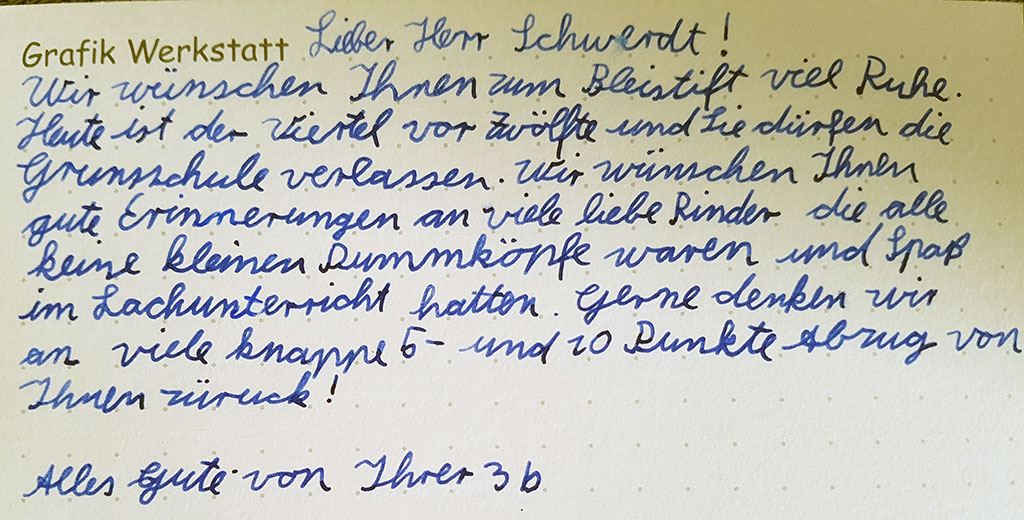 Grafik Werkstatt Lieber Herr Schwerdt!
Wir wünschen Ihnen zum Bleistift viel Ruhe.
Heute ist der Viertel vor Zwölfte und Sie dürfen die
Grunsschule verlassen. Wir wünschen Ihnen
gute Erinnerungen an viele liebe Rinder die alle
keine kleinen Dummköpfe waren und Spaß
im Lachunterricht hatten. Gerne denken wir
an viele knappe 5- und 10 Punkte Abzug von
Ihnen züruck!
Alles Gute von Ihrer 3b